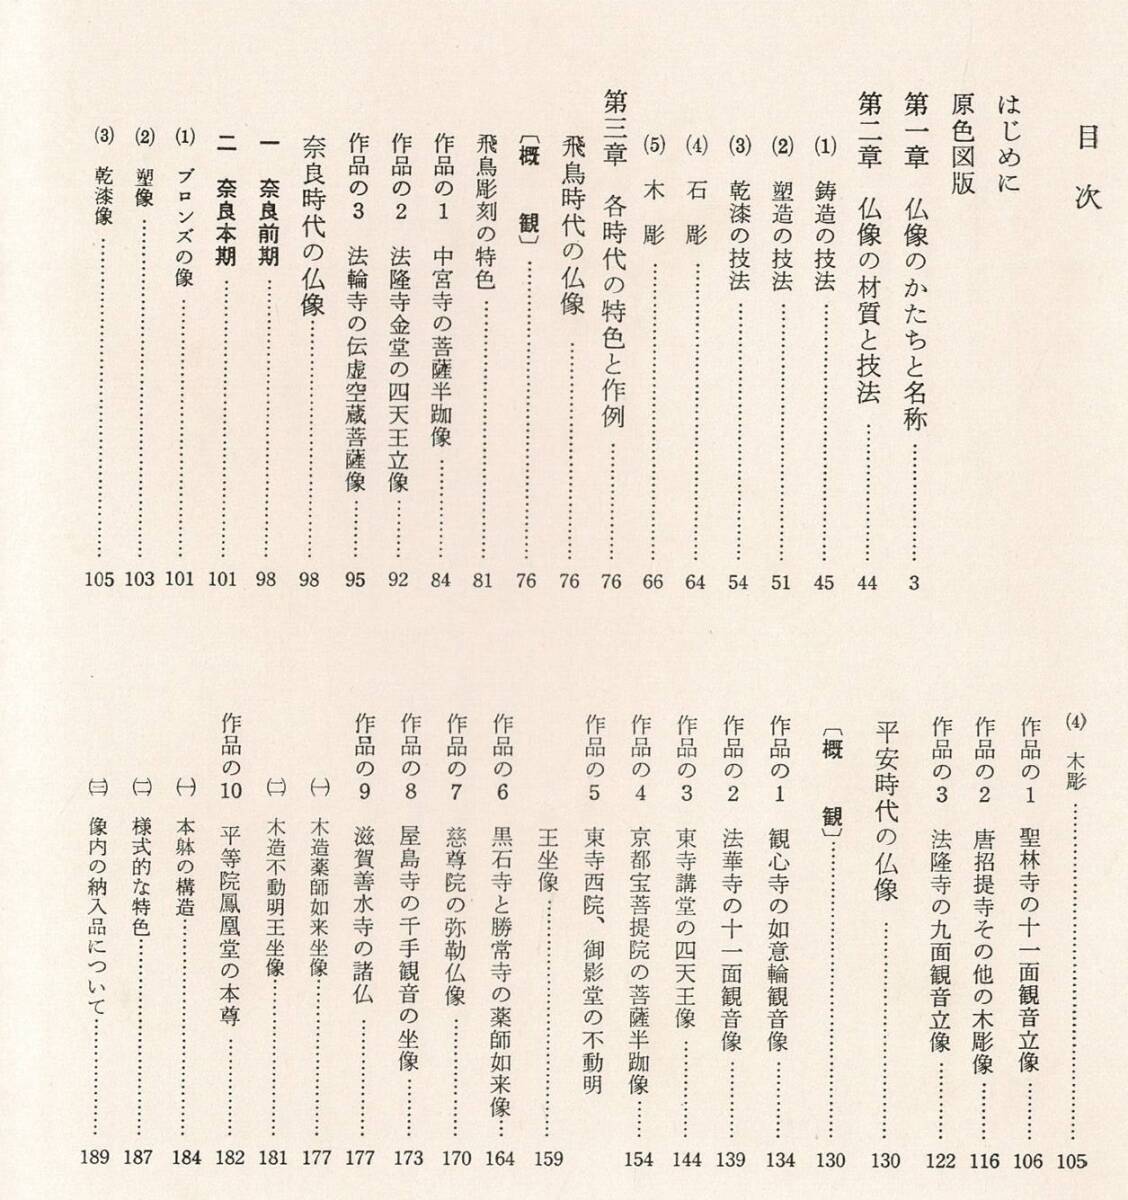 目次
はじめに
原色図版
第一章 仏像のかたちと名称……………3
第二章 仏像の材質と技法……………44
(1) 鋳造の技法……………45
(2) 塑造の技法……………51
(3) 乾漆の技法……………54
(4) 石彫……………64
(5) 木彫……………66
第三章 各時代の特色と作例……………76
飛鳥時代の仏像……………76
〔概観〕……………76
飛鳥彫刻の特色……………81
作品の1 中宮寺の菩薩半跏像……………84
作品の2 法隆寺金堂の四天王立像……………92
作品の3 法輪寺の伝虚空蔵菩薩像……………95
奈良時代の仏像……………98
一 奈良前期……………98
二 奈良本期……………101
(1) ブロンズの像……………101
(2) 塑像……………103
(3) 乾漆像……………105
(4) 木彫……………105
作品の1 聖林寺の十一面観音立像……………106
作品の2 唐招提寺その他の木彫像……………116
作品の3 法隆寺の九面観音立像……………122
平安時代の仏像……………130
〔概観〕……………130
作品の1 観心寺の如意輪観音像……………134
作品の2 法華寺の十一面観音像……………139
作品の3 東寺講堂の四天王像……………144
作品の4 京都宝菩提院の菩薩半跏像……………154
作品の5 東寺西院、御影堂の不動明
王坐像……………159
作品の6 黒石寺と勝常寺の薬師如来像……………164
作品の7 慈尊院の弥勒仏像……………170
作品の8 屋島寺の千手観音の坐像……………173
作品の9 滋賀善水寺の諸仏……………177
㈠ 木造薬師如来坐像……………177
㈡ 木造不動明王坐像……………181
作品の10 平等院鳳凰堂の本尊……………182
㈠ 本躰の構造……………184
㈡ 様式的な特色……………187
㈢ 像内の納入品について……………189